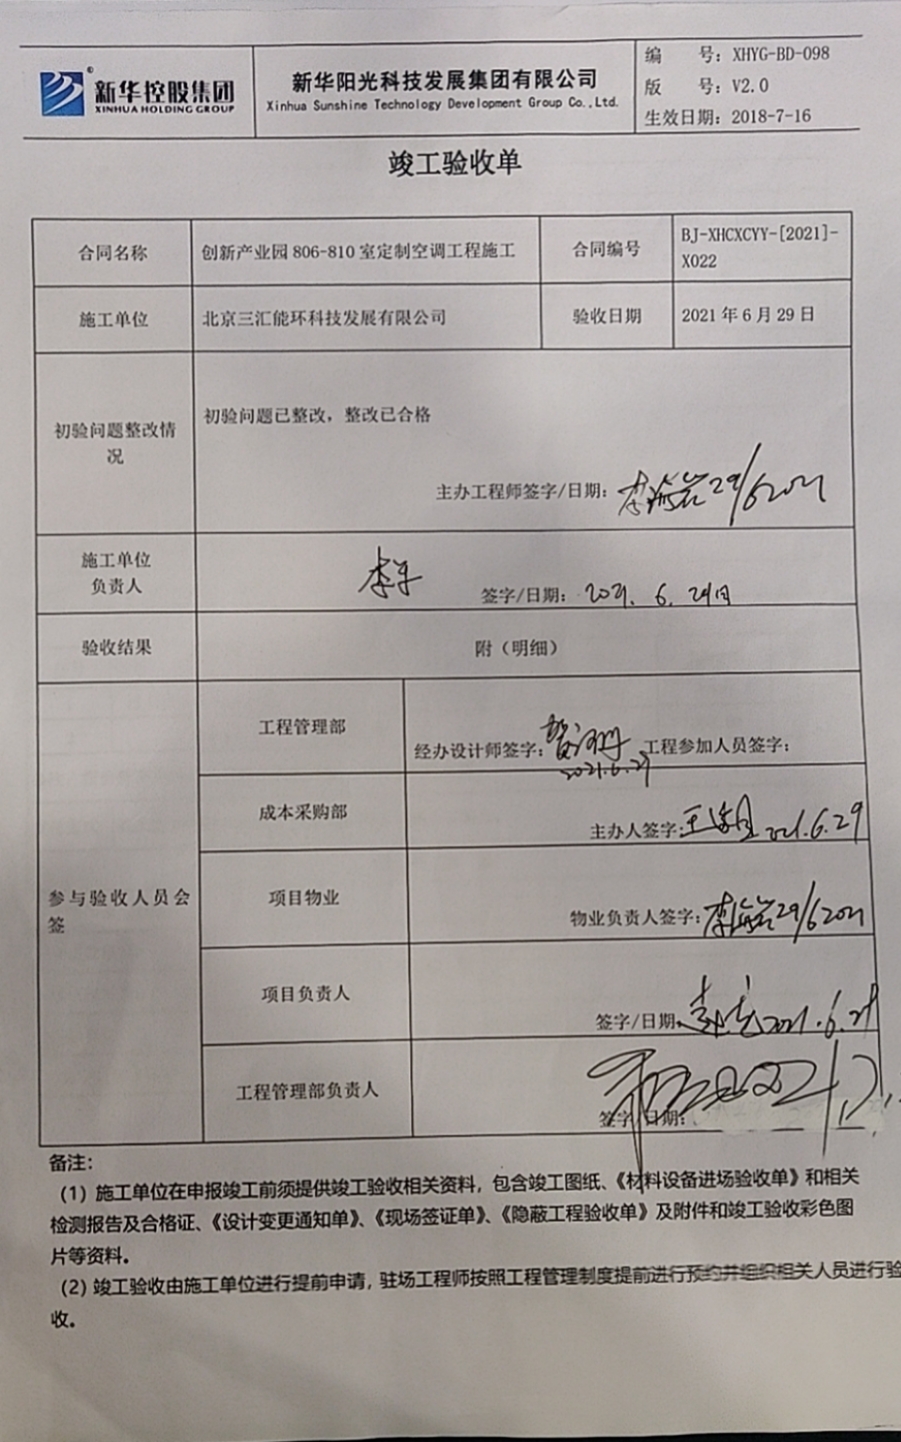 新华控股集团
XINHUA HOLDING GROUP
新华阳光科技发展集团有限公司
Xinhua Sunshine Technology Development Group Co.,Ltd.
编 号：XHYG-BD-098
版 号：V2.0
生效日期：2018-7-16
竣工验收单
合同名称 创新产业园 806-810 室定制空调工程施工 合同编号 BJ-XHCXCYY-[2021]-
X022
施工单位 北京三汇能环科技发展有限公司 验收日期 2021 年 6 月 29 日
初验问题整改情
况
初验问题已整改，整改已合格
主办工程师签字/日期：李海岩 29/6 2021
施工单位
负责人
李军 签字/日期：2021. 6. 29日
验收结果 附（明细）
参与验收人员会
签
工程管理部
经办设计师签字： 工程参加人员签字：
2021.6.29
成本采购部
主办人签字： 2021.6.29
项目物业
物业负责人签字：李海岩 29/6 2021
项目负责人
签字/日期： 2021.6.29
工程管理部负责人
签字/日期：
备注：
（1）施工单位在申报竣工前须提供竣工验收相关资料，包含竣工图纸、《材料设备进场验收单》和相关
检测报告及合格证、《设计变更通知单》、《现场签证单》、《隐蔽工程验收单》及附件和竣工验收彩色图
片等资料。
（2）竣工验收由施工单位进行提前申请，驻场工程师按照工程管理制度提前进行预约并组织相关人员进行验
收。